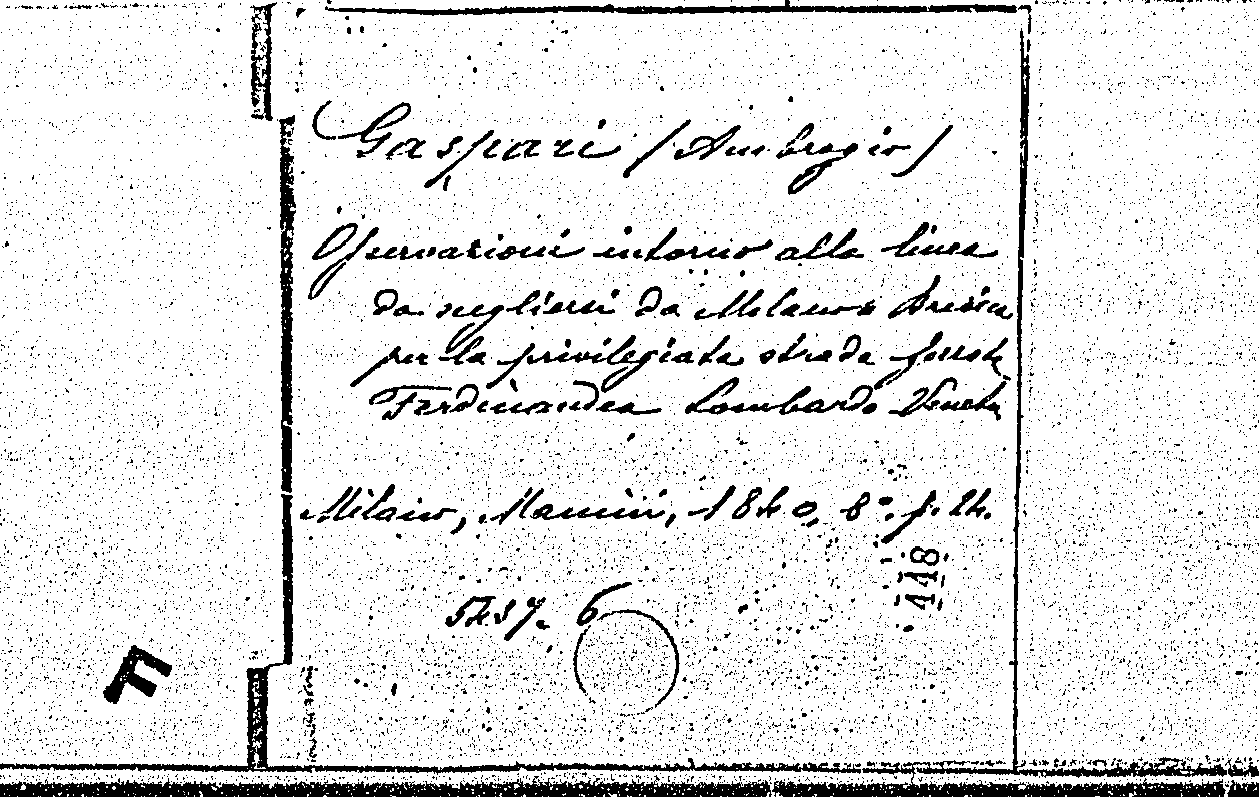 Gaspari (Ambrogio)
Osservazioni intorno alla linea
da scegliersi da Milano a Brescia
per la privilegiata strada ferrata
Ferdinandea Lombardo Veneta
Milano, Manini, 1840, 8°. p. 24.
448
5437. 6
F